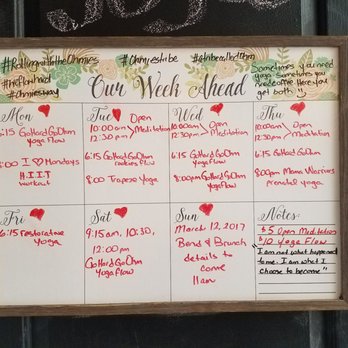 #RollingwiththeOhmies
#hiftwhind
#Ohmiesway
#Ohmiestribe
#inbreathedOhm
Sometimes you need
yoga sometimes you
need coffee Here you
get both
Our Week Ahead
Mon
6:15 GoHardGoOhm
Yoga flow
8:00 I ♥ Mondays
H.I.I.T
workout
Tue
10:00am > Open
12:30pm Meditation
6:15 GoHardGoOhm
yoga flow
8:00 Trapeze Yoga
Wed
10:00am > Open
12:30pm Meditation
6:15 GoHardGoOhm
Yogaflow
8:00pm GoHardGoOhm
Yogaflow
Thu
10:00am > Open
12:30pm Meditation
6:15 GoHardGoOhm
Yogaflow
8:00pm Mama Warriors
prenatal yoga
Fri
6:15 restorative
yoga
Sat
9:15am, 10:30,
12:00pm
GoHardGoOhm
Yoga flow
Sun
March 12, 2017
Bend & Brunch
details to
come
11am
Notes:
$5 Open Meditation
$10 Yoga Flow
I am not what happened
to me. I am what I
choose to become"